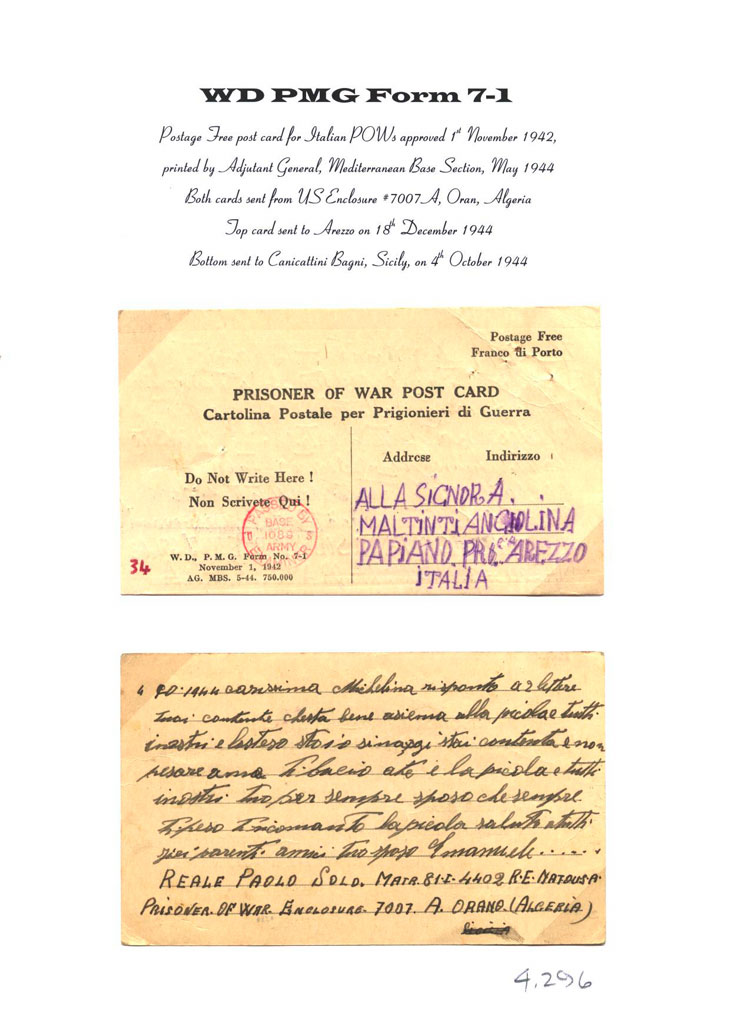 WD PMG Form 7-1
Postage Free post card for Italian POWs approved 1st November 1942,
printed by Adjutant General, Mediterranean Base Section, May 1944
Both cards sent from US Enclosure #7007 A, Oran, Algeria
Top card sent to Arezzo on 18th December 1944
Bottom sent to Canicattini Bagni, Sicily, on 4th October 1944
Postage Free
Franco di Porto
PRISONER OF WAR POST CARD
Cartolina Postale per Prigionieri di Guerra
Address Indirizzo
Do Not Write Here !
Non Scrivete Qui !
ALLA SIGNORA.
MALTINTI ANGIOLINA
PAPIANO. AREZZO
ITALIA
PASSED BY
BASE
1066
ARMY
U S
34
W. D., P. M. G. Form No. 7-1
November 1, 1942
AG. MBS. 5-44. 750.000
1944 carissima Michelina risponto a 2 lettere
tuoi contente bene asiema alla picola e tutti
inostri stai contenta e non
pesare ama ti bacio a te e la picola e tutti
inostri tuo per sempre sposo che sempre
ti peso ti ricomanto la picola saluta tutti
parenti amici tuo sposo Emanuele.....
REALE PAOLO SOLD. MATR. 81-I-4402 R.E. NATOUSA.
PRISONER OF WAR. ENCLOSURE. 7007. A. ORANO (ALGERIA)
4.296